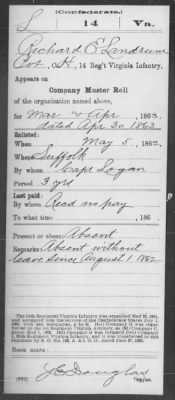 (Confederate.)
L 14 Va.
Richard E Landrum
Co. H, 14 Reg't Virginia Infantry.
Appears on
Company Muster Roll
of the organization named above,
for Mar & Apr, 1863.
dated Apr 30 1863
Enlisted:
When May 5, 1862.
Where Suffolk
By whom Capt Logan
Period 3 yrs
Last paid:
By whom Recd no pay
To what time , 186 .
Present or absent Absent
Remarks Absent without
leave since August 1 1862
Book mark:
J E Douglas
Copyist.